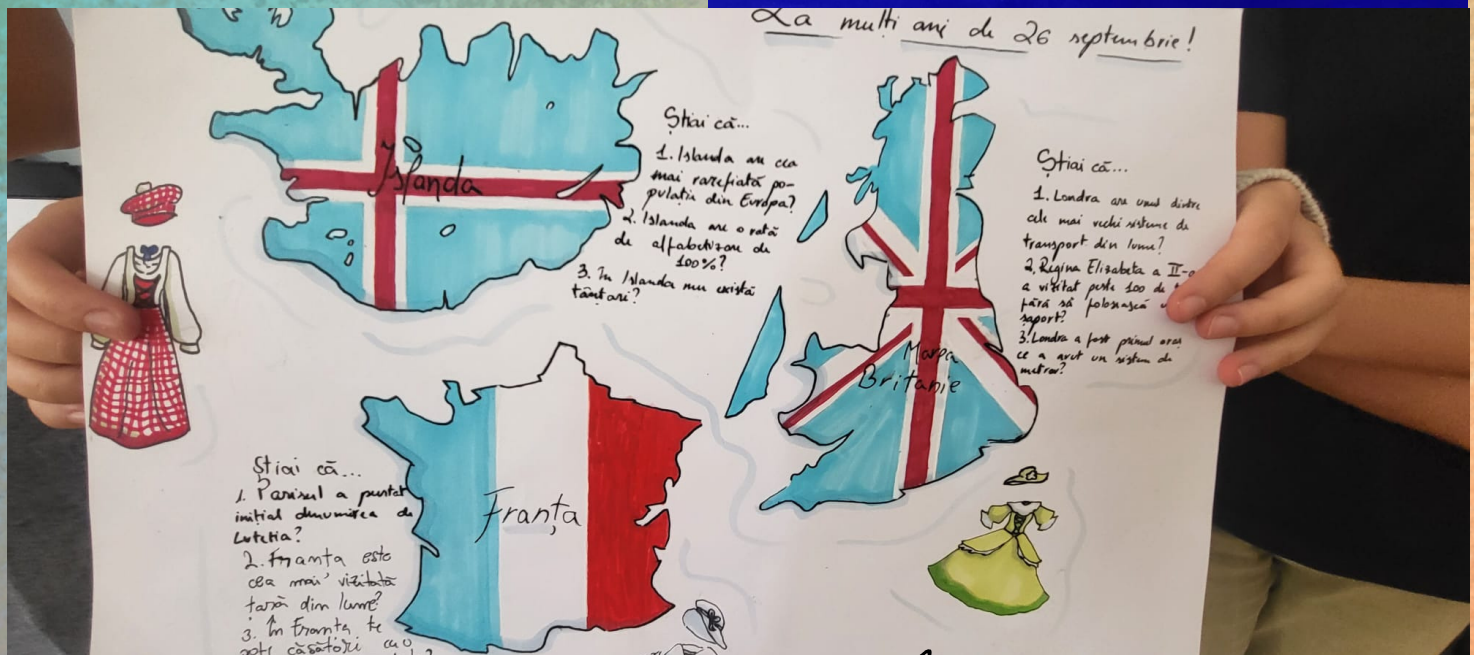 La mulți ani de 26 septembrie!
Islanda
Știai că...
1. Islanda are cea
mai rarefiată po-
pulație din Europa?
2. Islanda are o rată
de alfabetizare de
100%?
3. În Islanda nu există
țânțari?
Marea
Britanie
Știai că...
1. Londra are unul dintre
cele mai vechi sisteme de
transport din lume?
2. Regina Elizabeta a II-a
a vizitat peste 100 de
fără să folosească
pașaport?
3. Londra a fost primul oraș
ce a avut un sistem de
metrou?
Franța
Știai că...
1. Parisul a purtat
inițial denumirea de
Lutetia?
2. Franța este
cea mai vizitată
țară din lume?
3. În Franța te
poți căsători cu o